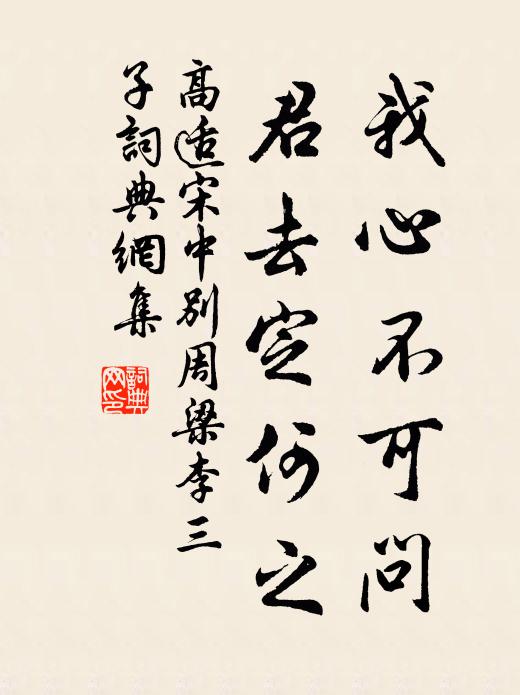 我心不可問
君去定何之
高适宋中别周梁李三
子詞典網集
詞典
网印